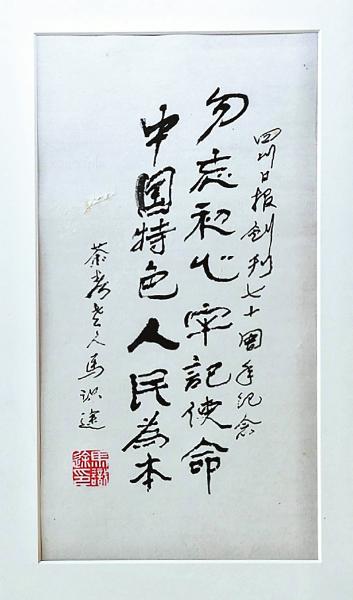 四川日报创刊七十周年纪念
勿忘初心牢记使命
中国特色人民为本
茶寿老人馬识途
馬識途印